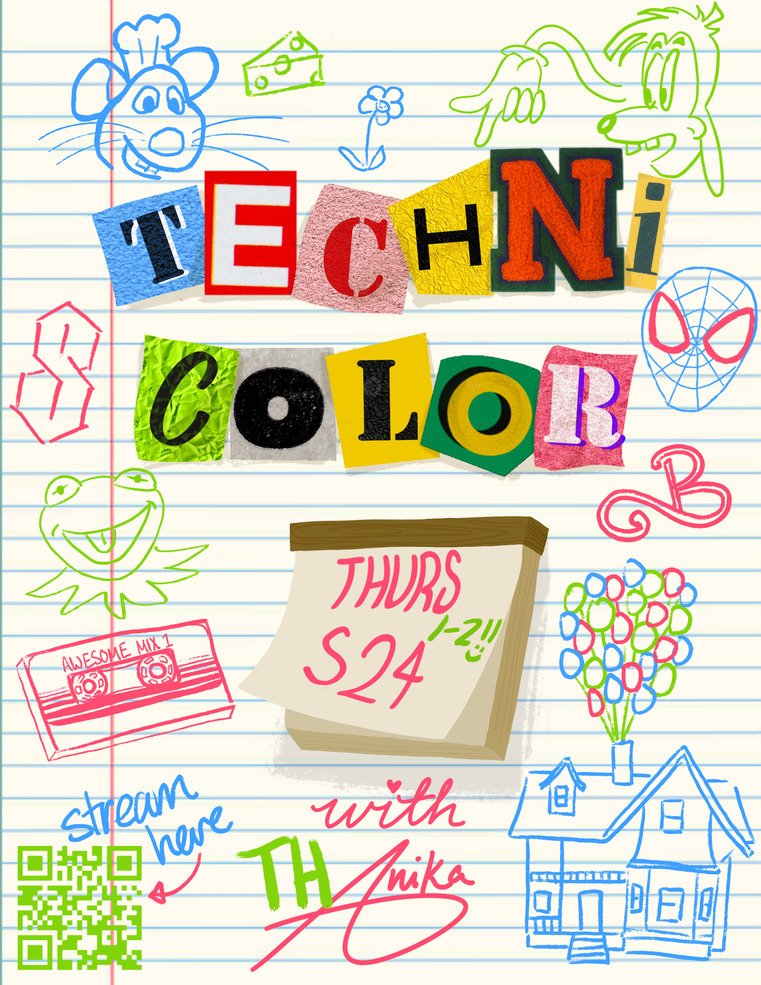 TECHNi
COLOR
THURS
1-2!!
S24
AWESOME MIX 1
stream
here
with
TH Anika
S
B